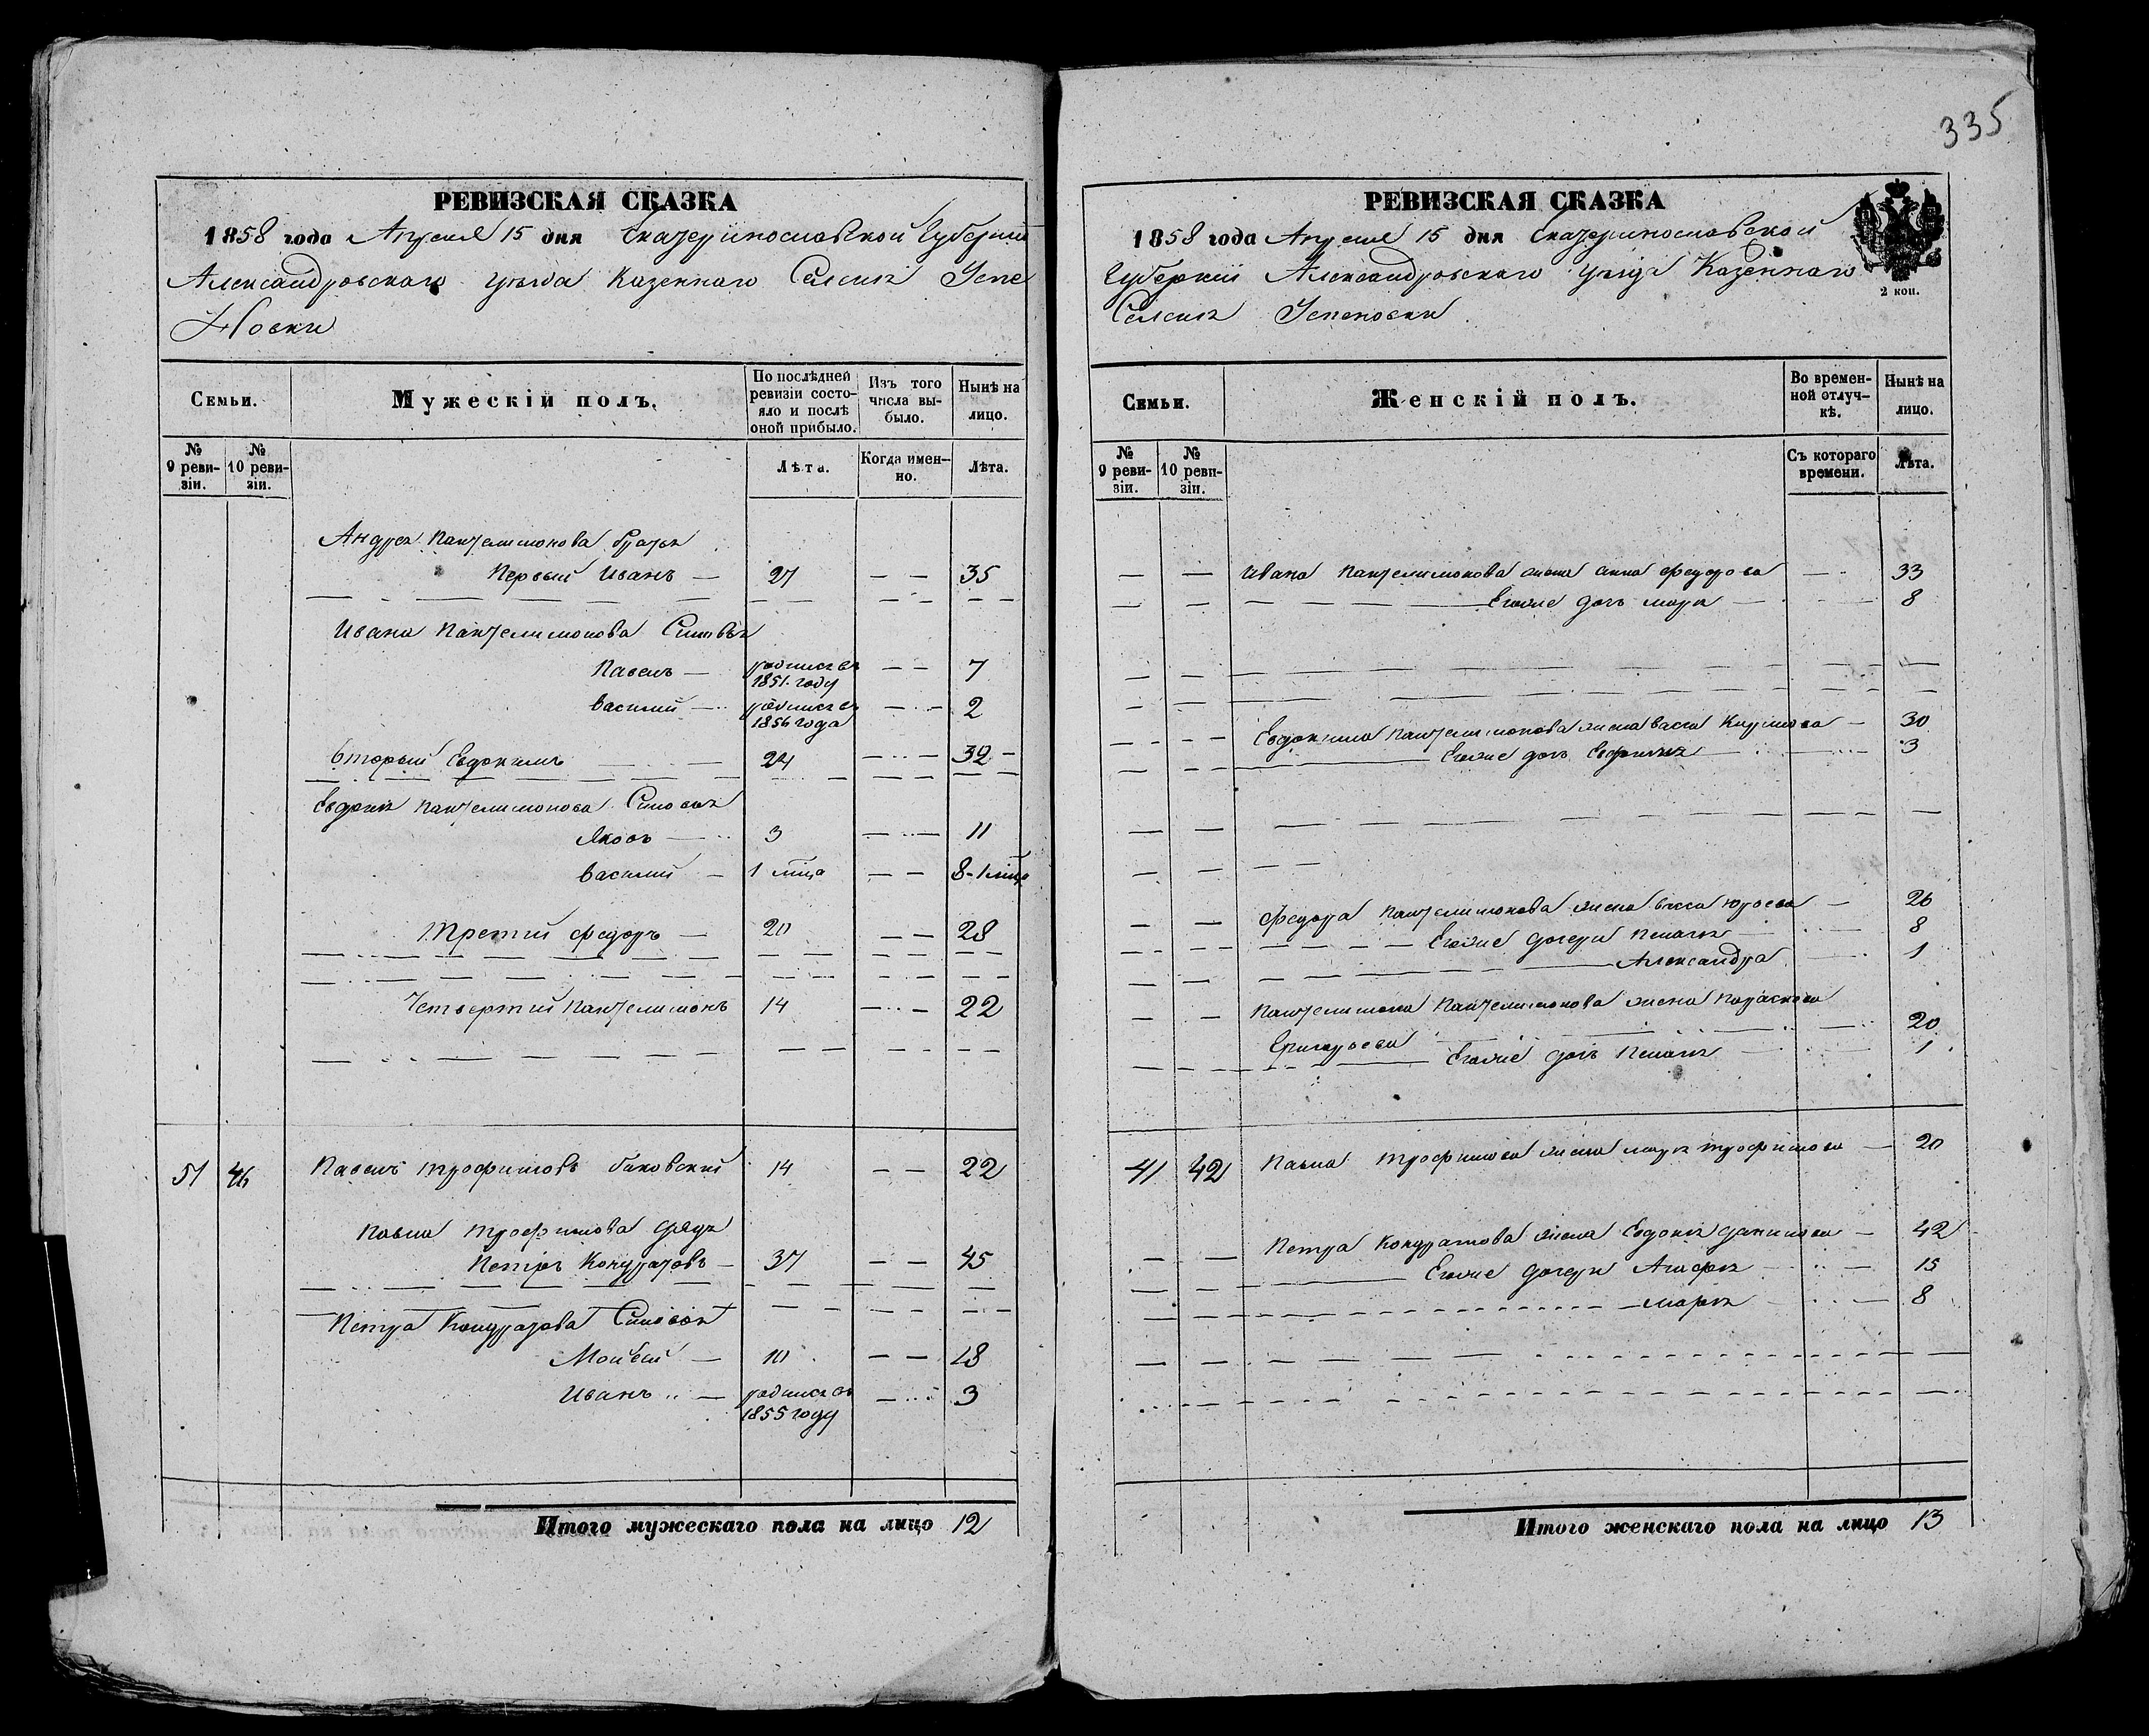 335
РЕВИЗСКАЯ СКАЗКА
1858 года Апреля 15 дня Екатеринославской Губернии
Александровского уезда Казенного Селения Успе
Новки
Семьи.
Мужескій полъ.
По послѣдней ревизіи состояло и послѣ оной прибыло.
Изъ того числа выбыло.
Нынѣ на лицо.
№ 9 ревизіи.
№ 10 ревизіи.
Лѣта.
Когда именно.
Лѣта.
Андрея Пантелимонова братья
Первый Иванъ — 27 — — 35
Ивана Пантелимонова Синовья
Павелъ — родился въ 1851 году — — 7
Василий — родился въ 1856 года — — 2
Вторый Евдокимъ — 24 — — 32 —
Евдокима Пантелимонова Синовья
Яковъ — 3 — — 11
Василий — 1 мца — — 8-1 мца
Третий Федоръ — 20 — — 28
Четвертий Пантелимонъ 14 — — 22
51 46 Павелъ Трофимовъ 14 — — 22
Павла Трофимова дядя
Петръ Кондратовъ — 37 — — 45
Петра Кондратова Синовья
Мойсей — 10 — — 18
Иванъ — родился въ 1855 году — — 3
Итого мужескаго пола на лицо 12
РЕВИЗСКАЯ СКАЗКА
1858 года Апреля 15 дня Екатеринославской
Губернии Александровского уезда Казенного
2 коп.
Селения Успеновки
Семьи.
Женскій полъ.
Во временной отлучкѣ.
Нынѣ на лицо.
№ 9 ревизіи.
№ 10 ревизіи.
Съ котораго времени.
Лѣта.
— — Ивана Пантелимонова жена Анна Федорова — 33
— — Егоже дочь Марья — 8
Евдокима Пантелимонова жена Васса — 30
Егоже дочь — 3
Федора Пантелимонова жена Васса Юрьева — 26
Егоже дочери Пелагея — 8
Александра — 1
Пантелимона Пантелимонова жена Парасковья
Григорьева — 20
Егоже дочь Пелагея — 1
41 42 Павла Трофимова жена Марья Трофимова — 20
Петра Кондратова жена Евдокия Данилова — 42
Егоже дочери Агафья — 15
Марья — 8
Итого женскаго пола на лицо 13